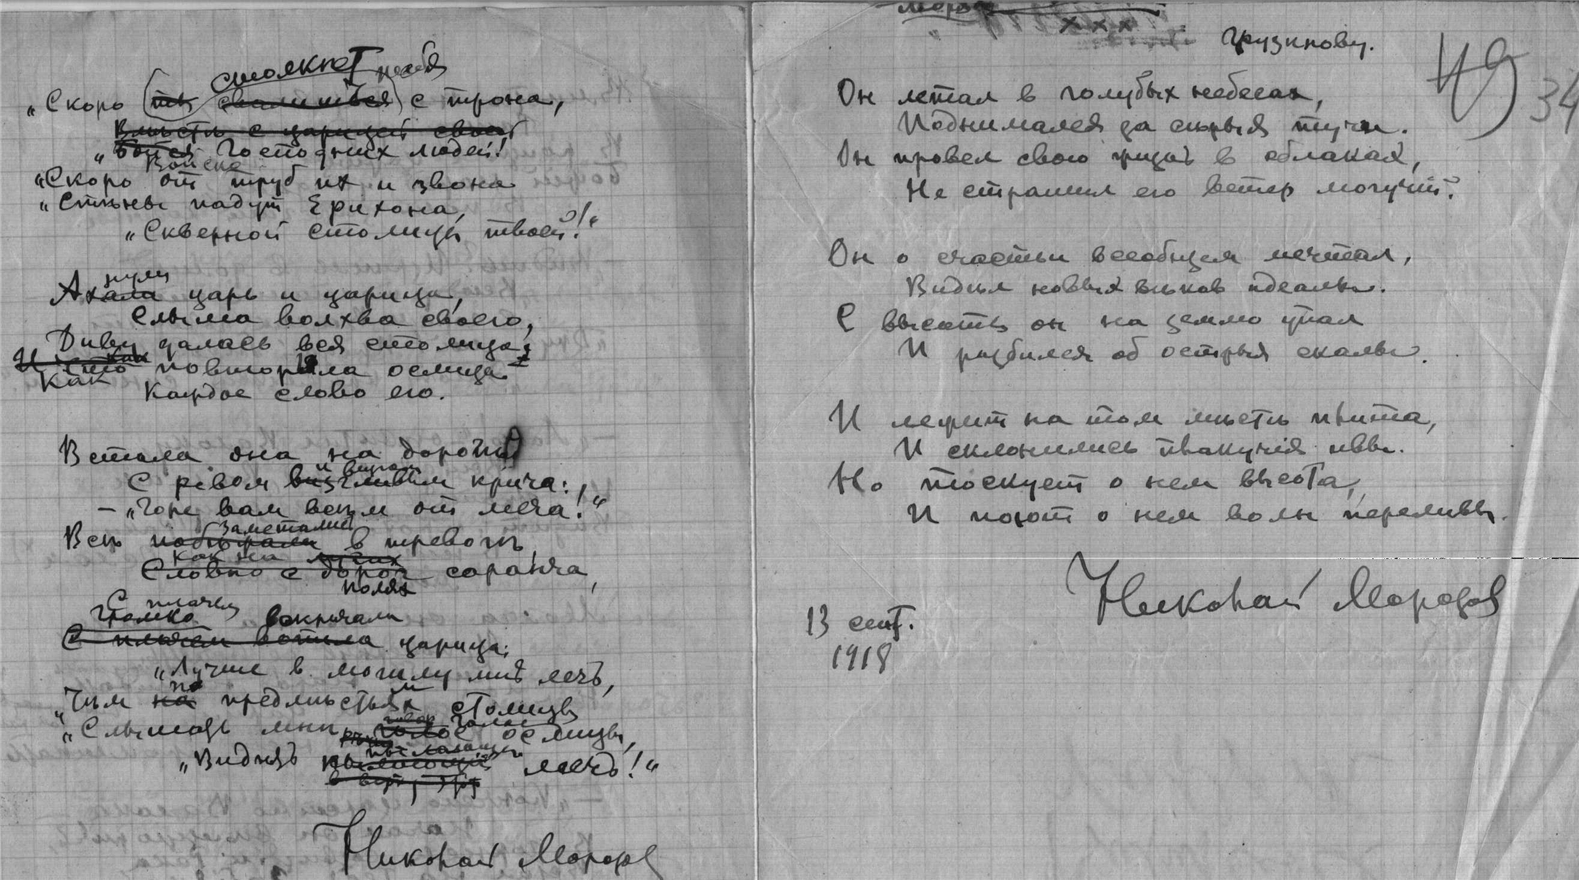 столкнет тебя
„Скоро ты свалишься с трона,
Вместе с царицей своей
„Войско Господних людей!
„Скоро от труб их и звона
„Стѣны падут Ерихона,
„Скверной столицы твоей!“
Ахнули царь и царица,
Слыша волхва своего,
Диву далась вся столица,
Как повторила ослица
Каждое слово его.
Встала она на дороге
С ревом и визгом крича:
— „Горе вам всѣм от меча!“
заметались
Всѣ в тревогѣ,
как на полях
Словно с саранча,
С плачем
Громко вскричали
С плачем вопила царица:
„Лучше в могилу мнѣ лечь,
„Чѣм на предмѣстьях столицы
„Слышать мнѣ голос ослицы,
„Видѣть пылающий мечъ!“
Николай Морозов
× × ×
Грузинову.
49
34
Он летал в голубых небесах,
Поднимался за сѣрыя тучи.
Он провел свою жизнь в облаках,
Не страшил его ветер могучий.
Он о счастьи всеобщем мечтал,
Видѣл новых вѣков идеалы.
С высоты он на землю упал
И разбился об острыя скалы.
И лежит на том мѣстѣ плита,
И склонились плакучія ивы.
Но тоскует о нем высота,
И поют о нем волн переливы.
Николай Морозов
13 сент.
1918